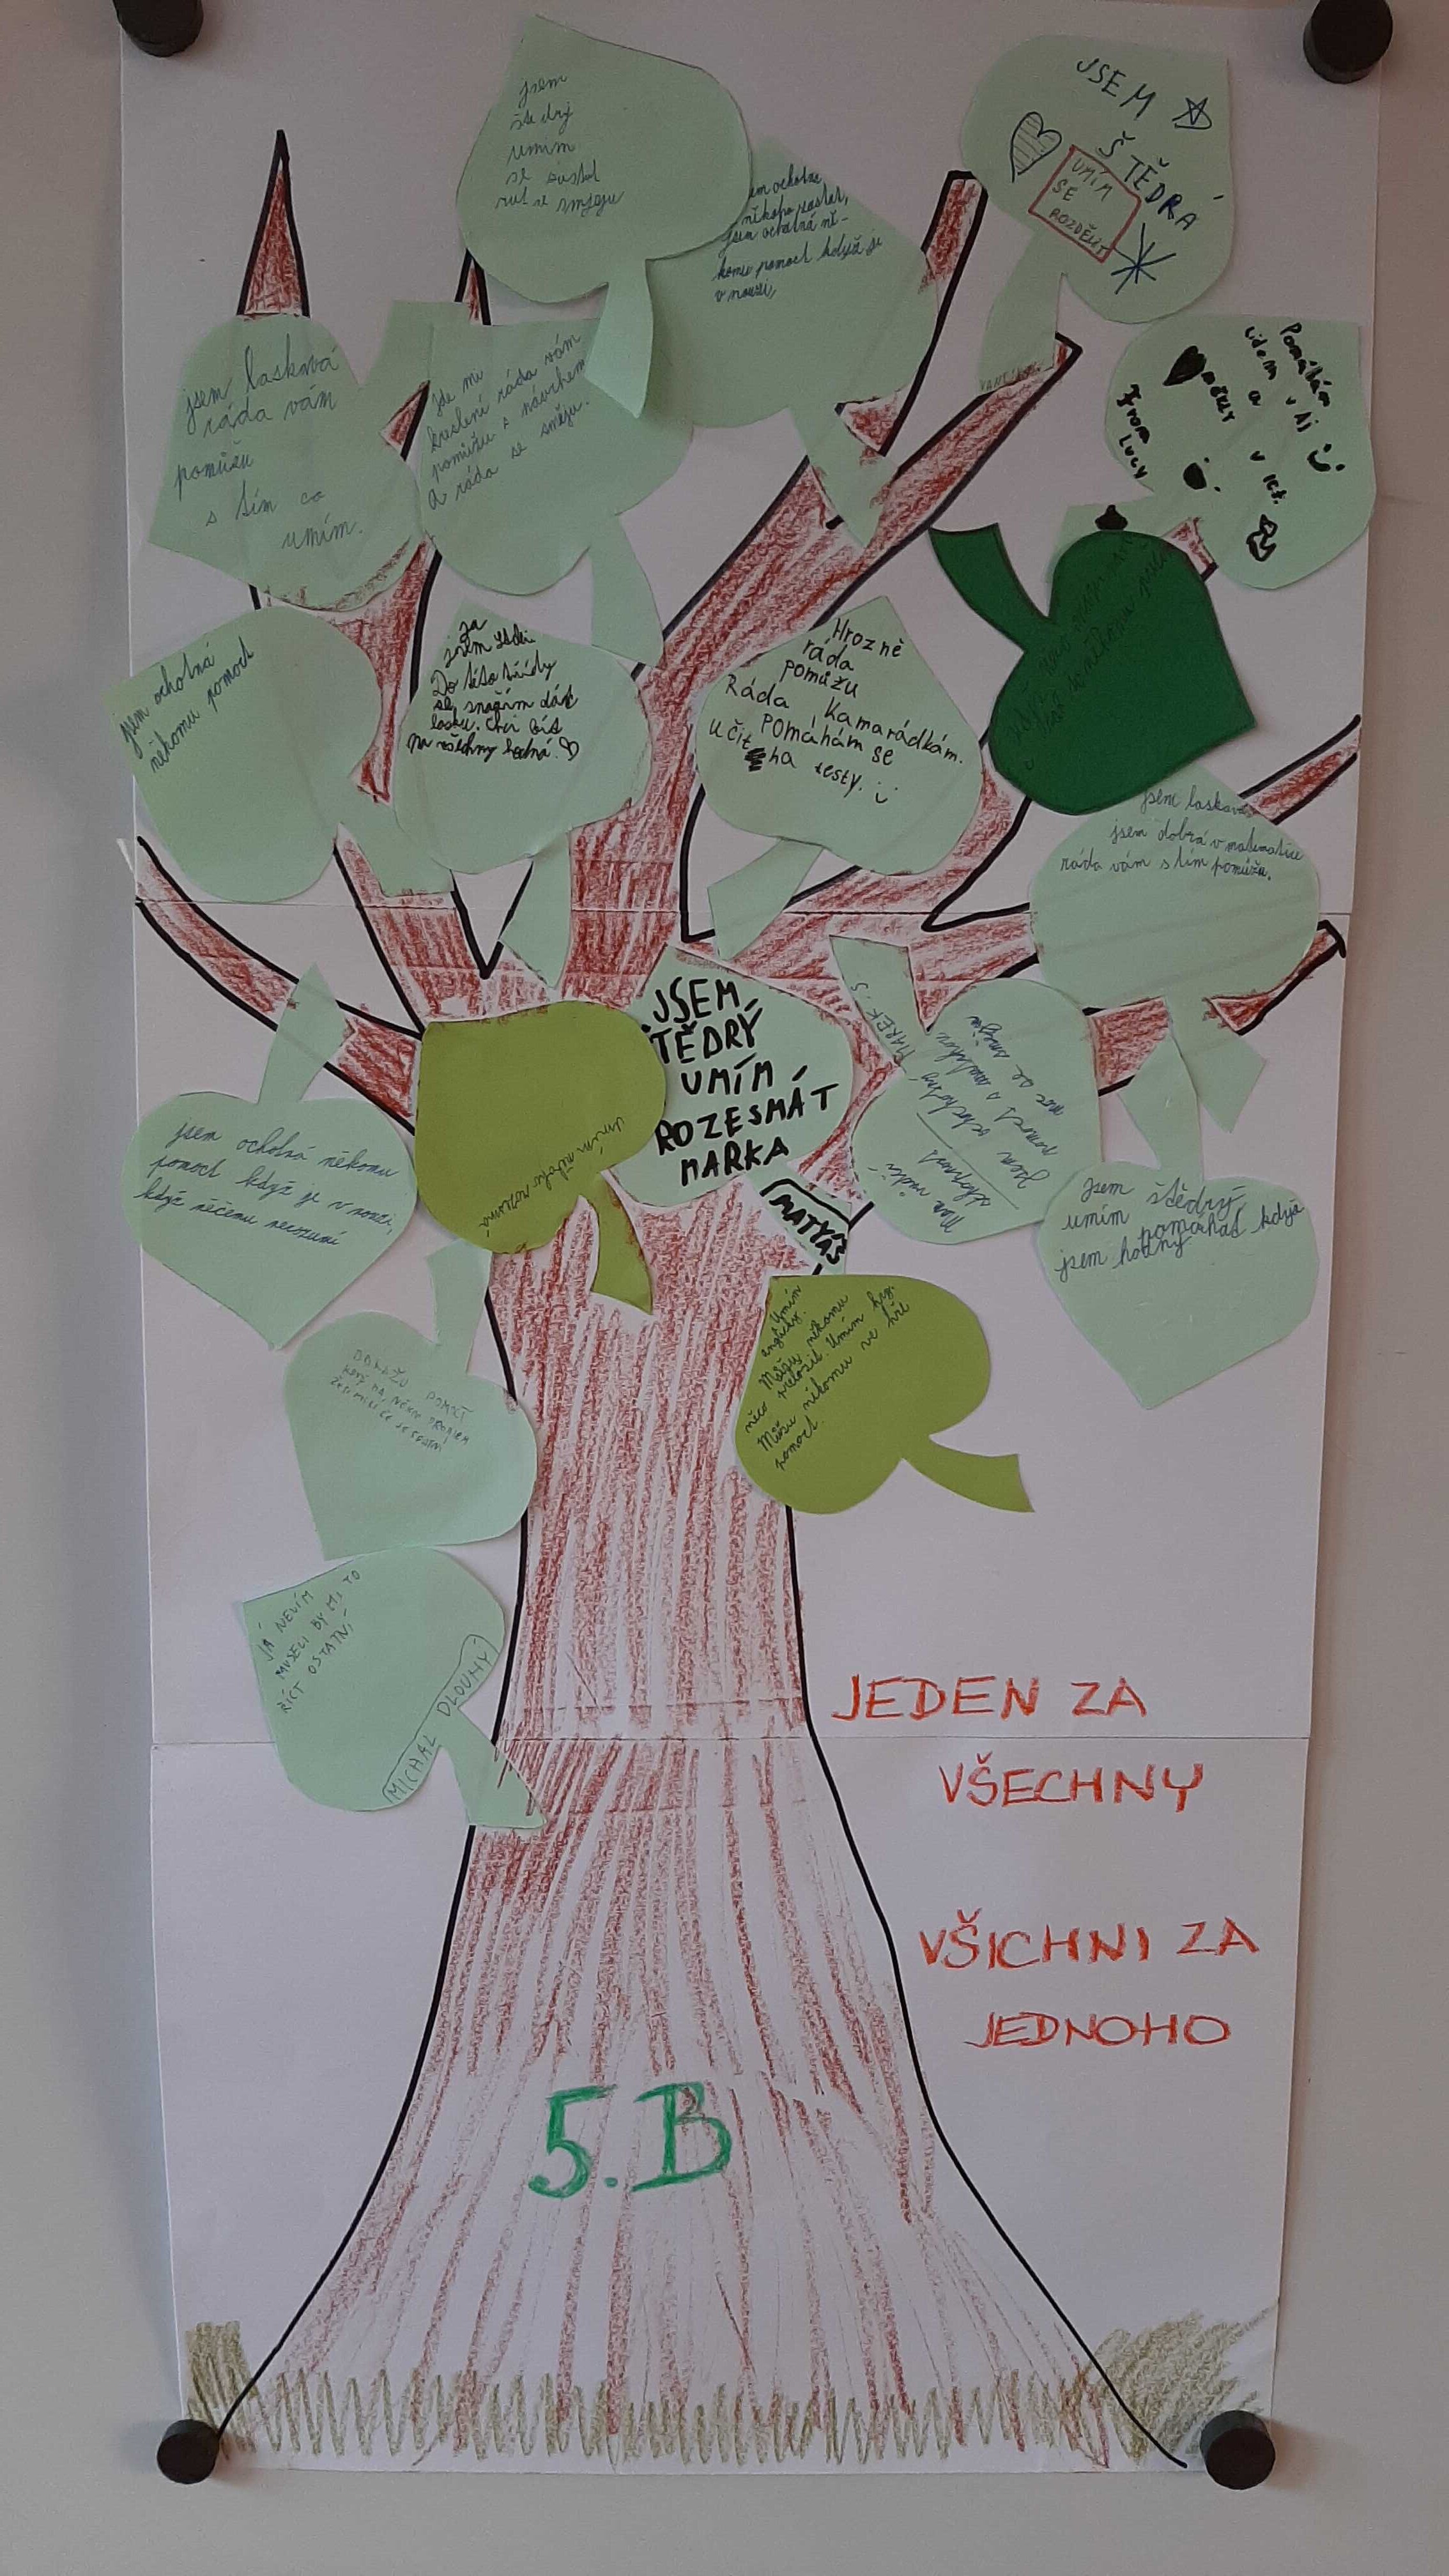 jsem
štědrý
umím
se
smjeju
ochotna
někoho zastat,
jsem ochotná ně-
komu pomoct když je
v nouzi,
JSEM
ŠTĚDRÁ
UMÍM
SE
ROZDĚLIT
jsem laskavá
ráda vám
pomůžu
s tím co
umím.
Jde mi
kreslení ráda vám
pomůžu s návrhem
a ráda se směju.
Pomáhám
lidem v Aj
a
v ICT.
From
Lucy
jsem ochotná
někomu pomoct
Ja
jsem
Do této třídy
se snažím dát
lásku. Chci bít
na všechny hodná.
Hrozně
ráda
pomůžu
Ráda Kamarádkám.
POmáhám se
učit na testy.
jsem laskavá
jsem dobrá v matematice
ráda vám s tím pomůžu.
JSEM
ŠTĚDRÝ
UMÍM
ROZESMÁT
MARKA
MATYÁŠ
MAREK S
Jsem všechodný
pomoct s
moc se směju
jsem ochotná někomu
pomoct když je v nouzi,
když něčemu nerozumí
Umím někoho
jsem štědrý
umím pomáhat když
jsem hodný
DOKÁŽU POMOCT
KDYŽ MÁ NĚKDO PROBLÉM
Umím
anglicky.
Můžu někomu
něco přeložit. Umím hry.
Můžu někomu ve hře
pomoct.
JÁ NEVÍM
MUSELI BY MI TO
ŘÍCT OSTATNÍ
MICHAL DLOUHÝ
JEDEN ZA
VŠECHNY
VŠICHNI ZA
JEDNOHO
5.B